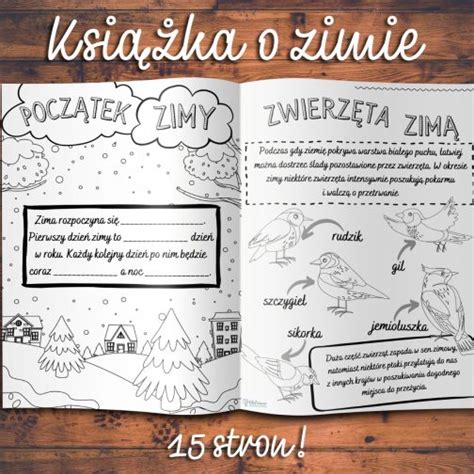 Książka o zimie
POCZĄTEK ZIMY
Zima rozpoczyna się _______________.
Pierwszy dzień zimy to ___________ dzień
w roku. Każdy kolejny dzień po nim będzie
coraz __________ a noc __________.
ZWIERZĘTA ZIMĄ
Podczas gdy ziemię pokrywa warstwa białego puchu, łatwiej
można dostrzec ślady pozostawione przez zwierzęta. W okresie
zimy niektóre zwierzęta intensywnie poszukują pokarmu
i walczą o przetrwanie.
rudzik
gil
szczygieł
sikorka
jemiołuszka
Duża część zwierząt zapada w sen zimowy,
natomiast niektóre ptaki przylatują do nas
z innych krajów w poszukiwaniu dogodnego
miejsca do przeżycia.
15 stron!